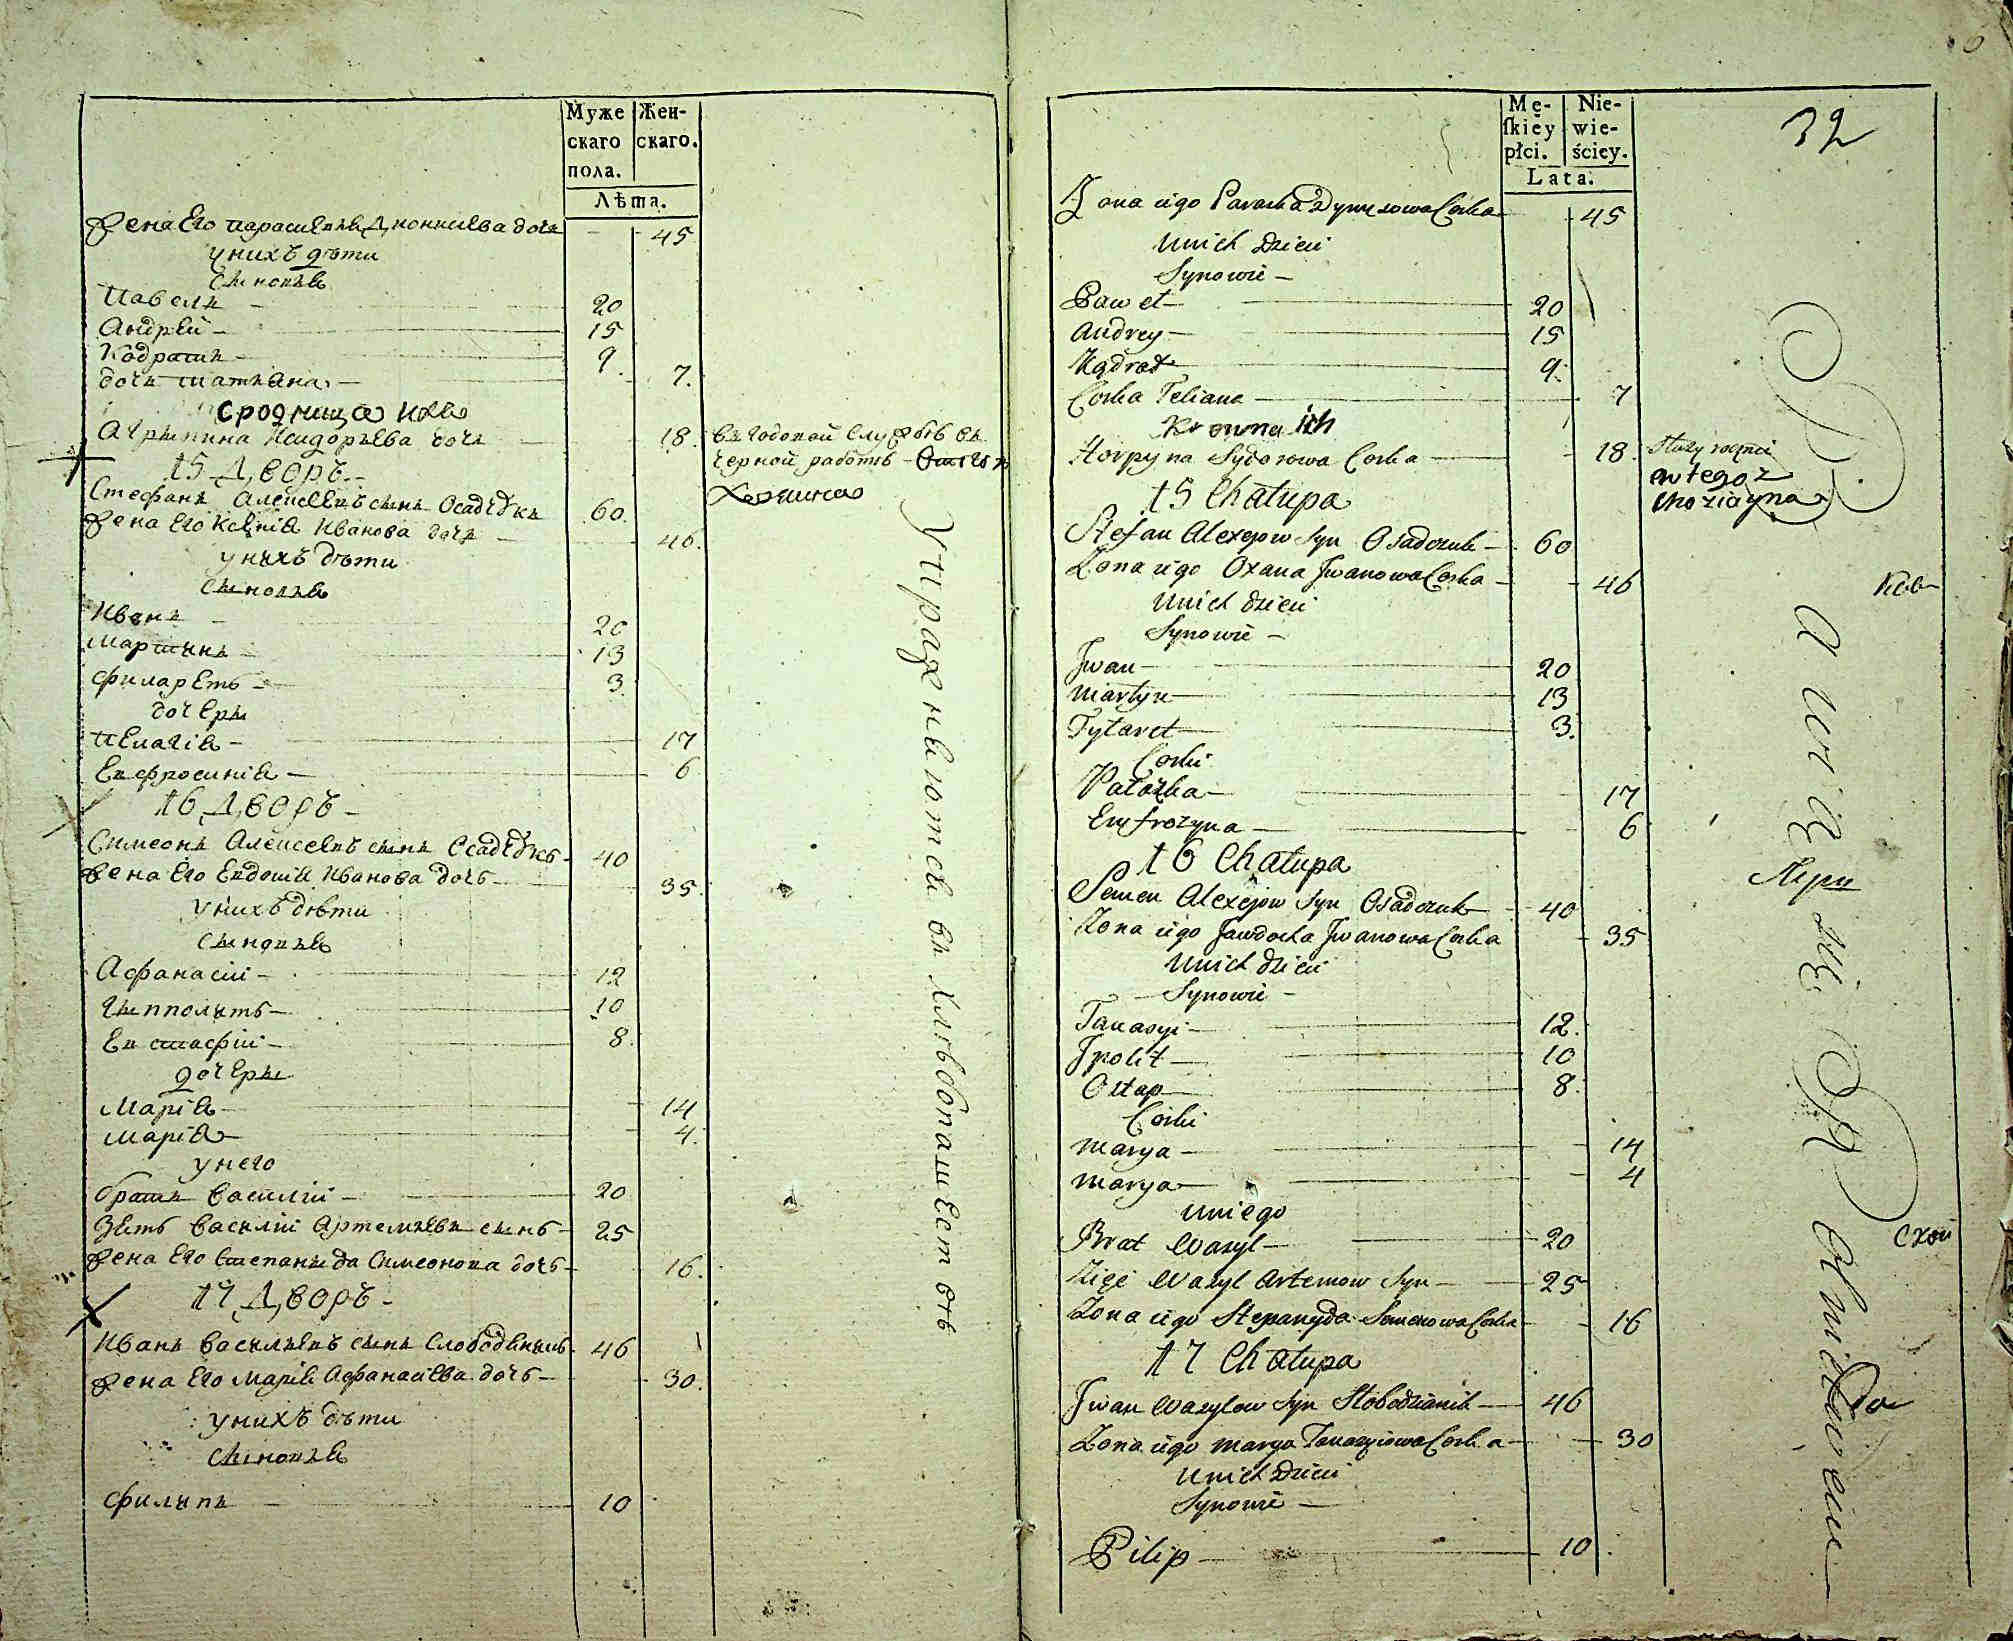 Муже
скаго
пола.
Жен-
скаго.
Лѣта.
жена Его параскевия Дионисиева дочь 45
у нихъ дѣти
сыновья
Павелъ — 20
Андрей — 15
Кодратъ — 9.
дочь татьяна — 7.
сродница ихъ
Агрыпина Исидорьева дочь 18. въ годовой службѣ въ
черной работѣ —
15 Дворъ —
Стефанъ Алексѣевъ сынъ Осадчукъ 60.
жена Его Ксенія Иванова дочь — 46.
у нихъ дѣти
сыновья
Иванъ — 20
Мартынъ — 13
филаретъ — 3.
дочеры
Пелагія — 17
Евфросинія — 6
16 Дворъ —
Симеонъ Алексѣевъ сынъ Осадчукъ — 40
жена Его Евдокія Иванова дочь — 35.
у нихъ дѣти
сыновья
Афанасій — 12
Ипполытъ — 10
Евстафій — 8.
дочеры
Марія — 14
Марія — 4.
у него
братъ василій — 20
Зять василій Артемьевъ сынъ — 25
жена Его степаныда Симеонова дочь — 16.
17 Дворъ —
Иванъ васильевъ сынъ Слободяныкъ 46
жена Его Марія Афанасіева дочь — 30.
у нихъ дѣти
сыновья
филыпъ — 10
Упражняются въ хлѣбопашествѣ
Mę-
ſkiey
płci.
Nie-
wie-
ściey.
Lata.
32
Zona iego Paraska Dynisowa Corka 45
Unich Dzieci
Synowie —
Paweł — 20
Andrey — 15
Kądrat — 9.
Corka Teliana — 7
Krewna ich
Horpyna Sydorowa Corka — 18. Służy roczni
u tegoż
Choziayna
15 Chałupa
Stefan Alexejow Syn Osadczuk — 60
Zona iego Oxana Jwanowa Corka — 46
Unich dzieci
Synowie —
Jwan — 20
Martyn — 13
Fylaret — 3.
Corki
Pałażka — 17
Eufrozyna — 6
16 Chałupa
Semen Alexejow Syn Osadczuk — 40
Zona iego Jawdocha Jwanowa Corka 35
Unich dzieci
Synowie —
Tanasyi — 12.
Jpolit — 10
Ostap — 8.
Corki
Marya — 14
Marya — 4
Uniego
Brat Wasyl — 20
Zięć Wasyl Artemow Syn — 25
Zona iego Stepanyda Semenowa Corka — 16
17 Chałupa
Jwan Wasylow Syn Słobodzianik — 46
Zona iego Marya Tanasyiowa Corka — 30
Unich Dzieci
Synowie —
Pilip — 10